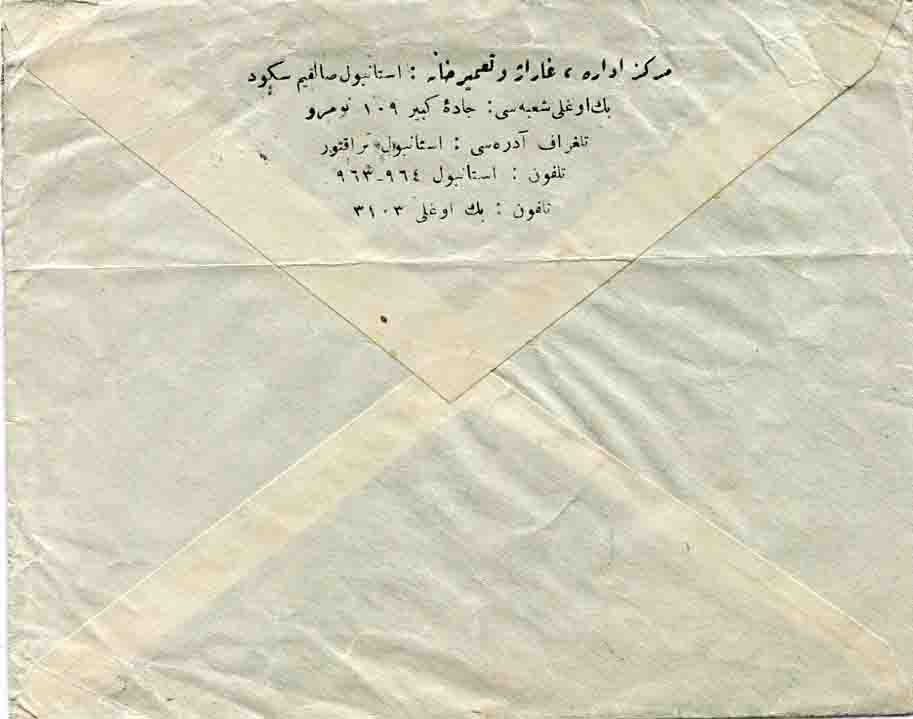 مركز اداره ، غاراژ و تعميرخانه : استانبول صالقيم سكود
بك اوغلى شعبه‌سى : جادۀ كبير ١٠٩ نومرو
تلغراف آدره‌سى : استانبول تراقتور
تلفون : استانبول ٩٦٤-٩٦٣
تلفون : بك اوغلى ٣١٠٣